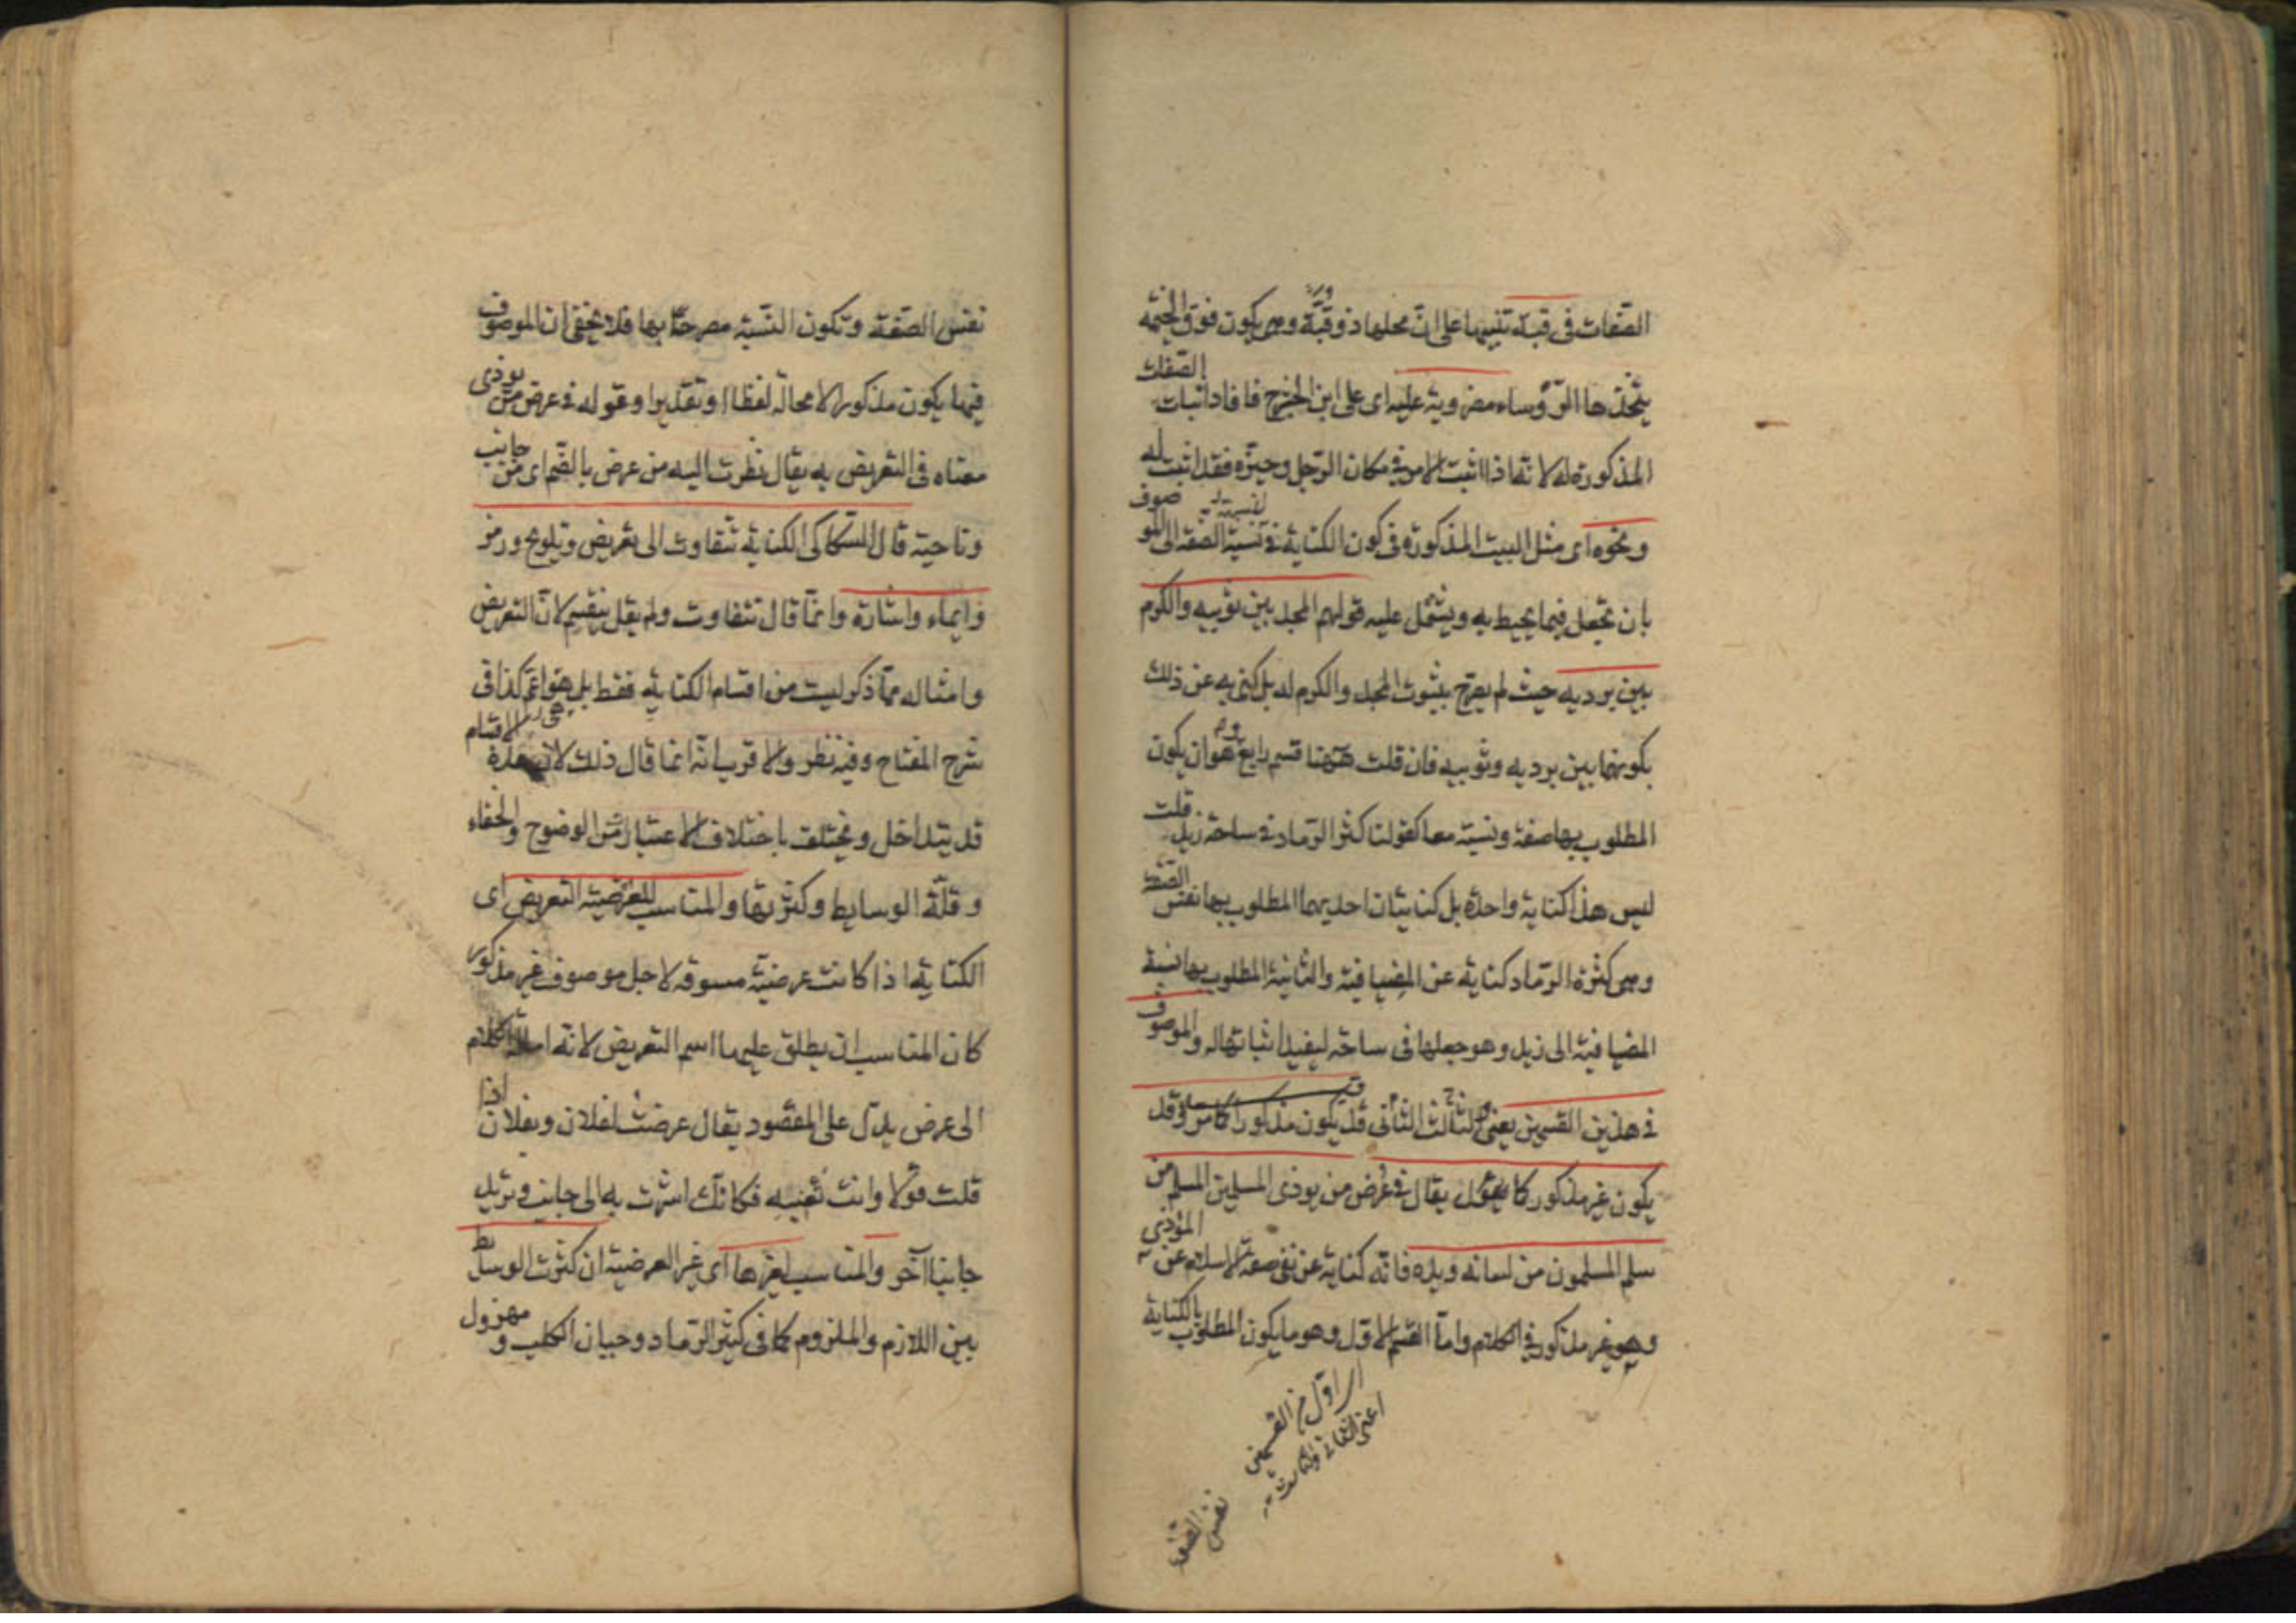 الصفات فى قبة تنبيها على ان محلها ذو قبة وهى يكون فوق الخيمة
يتخذها الرؤساء مضروبة عليه اى على ابن الحشرج فافاد اثبات الصفات
المذكورة له لانه اذا اثبت الامر فى مكان الرجل وحيزه فقد اثبت له
ونحوه اى مثل البيت المذكور فى كون الكناية فى نسبة الصفة الى الموصوف
بان تجعل فيما يحيط به ويشتمل عليه قولهم المجد بين ثوبيه والكرم
بين برديه حيث لم يصرح بثبوت المجد والكرم له بل كنى به عن ذلك
بكونهما بين برديه وثوبيه فان قلت ههنا قسم رابع وهو ان يكون
المطلوب بها صفة ونسبة معا كقولنا كثر الرماد فى ساحة زيد قلت
ليس هذا كناية واحدة بل كنايتان احديهما المطلوب بها نفس الصفة
وهى كثرة الرماد كناية عن المضيافية والثانية المطلوب بها نسبة
المضيافية الى زيد وهو جعلها فى ساحته ليفيد اثباتها له والموصوف
فى هذين القسمين يعنى الثانى والثالث قد يكون مذكورا كما مر وقد
يكون غير مذكور كما يقال فى عرض من يوذى المسلمين المسلم من
سلم المسلمون من لسانه ويده فانه كناية عن نفى صفة الاسلام عن المؤذى
وهو غير مذكور فى الكلام واما القسم الاول وهو ما يكون المطلوب بالكناية
الاول من القسمين
اعنى الثانى والثالث
نفس الصفة
نفس الصفة وتكون النسبة مصرحا بها فلا يخفى ان الموصوف
فيها يكون مذكورا لا محالة لفظا او تقديرا وقوله فى عرض من يوذى
معناه فى التعريض به يقال نظرت اليه من عرض بالضم اى من جانب
وناحية قال السكاكى الكناية تتفاوت الى تعريض وتلويح ورمز
وايماء واشارة وانما قال تتفاوت ولم يقل ينقسم لان التعريض
وامثاله مما ذكر ليست من اقسام الكناية فقط بل هو اعم كذا فى
شرح المفتاح وفيه نظر والاقرب انه انما قال ذلك لان هذه الاقسام
قد يتداخل ويختلف باختلاف الاعتبار من الوضوح والخفاء
وقلة الوسايط وكثرتها والمناسب للعرضية التعريض اى
الكناية اذا كانت عرضية مسوقة لاجل موصوف غير مذكور
كان المناسب ان يطلق عليها اسم التعريض لانه امالة الكلام
الى عرض يدل على المقصود يقال عرضت لفلان وبفلان اذا
قلت قولا وانت تعنيه فكانك اشرت به الى جانب وتريد
جانبا آخر والمناسب لغيرها اى غير العرضية ان كثرت الوسايط
بين اللازم والملزوم كما فى كثير الرماد وجبان الكلب ومهزول